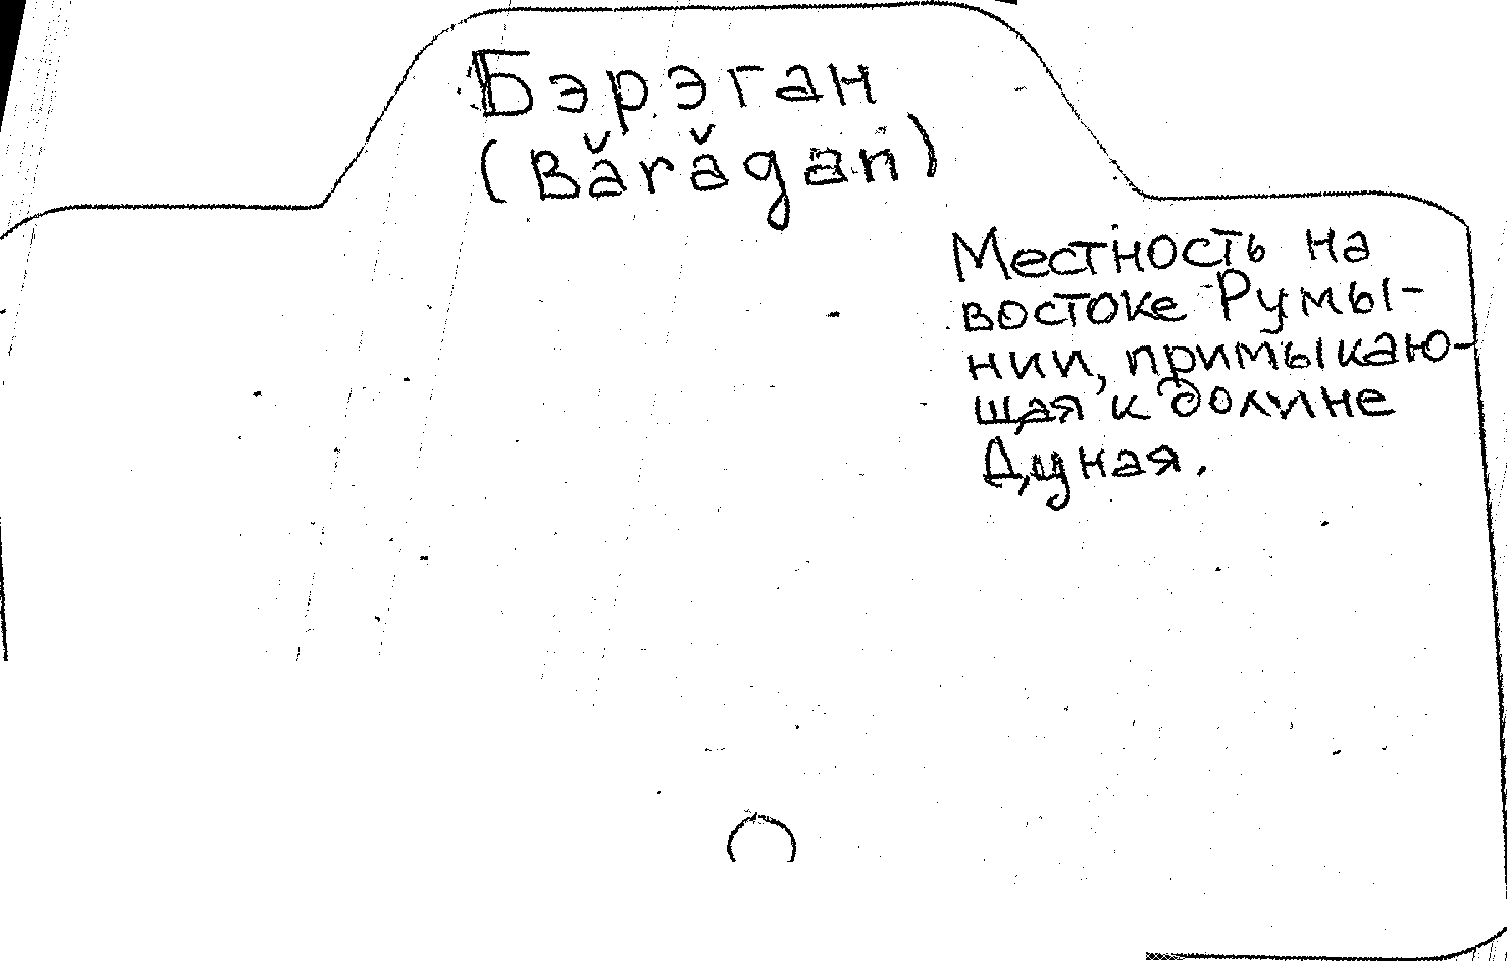 Бэрэган
(Bărăgan)
Местность на
востоке Румы-
нии, примыкаю-
щая к долине
Дуная.